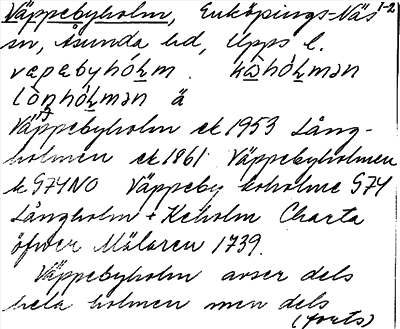 Väppebyholm, Enköpings-Näs 1-2
sn, Åsunda hd, Upps l.
vepabyhóḻm. kǻhóḻmən
lòŋhóḻmən ä
Väppebyholm ek 1953 Lång-
holmen ek 1861 Väppebyholmen
k G74NO Väppeby koholme G74
Långholm + Keholm Charta
öfwer Mälaren 1739.
Väppebyholm avser dels
hela holmen men dels
(forts)